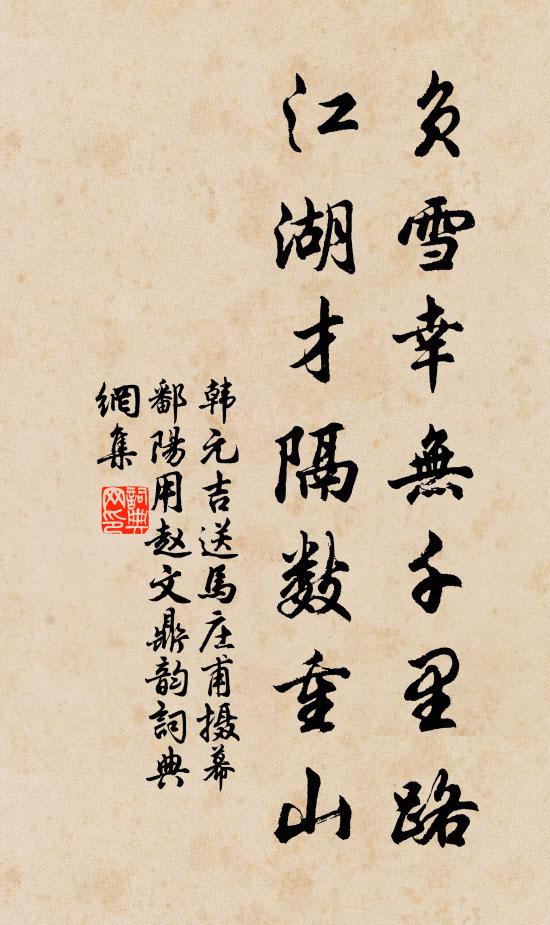 负雪幸無千里路
江湖才隔数重山
韩元吉送馬庄甫摄幕
鄱陽用赵文鼎韵詞典
網集
詞典
网印